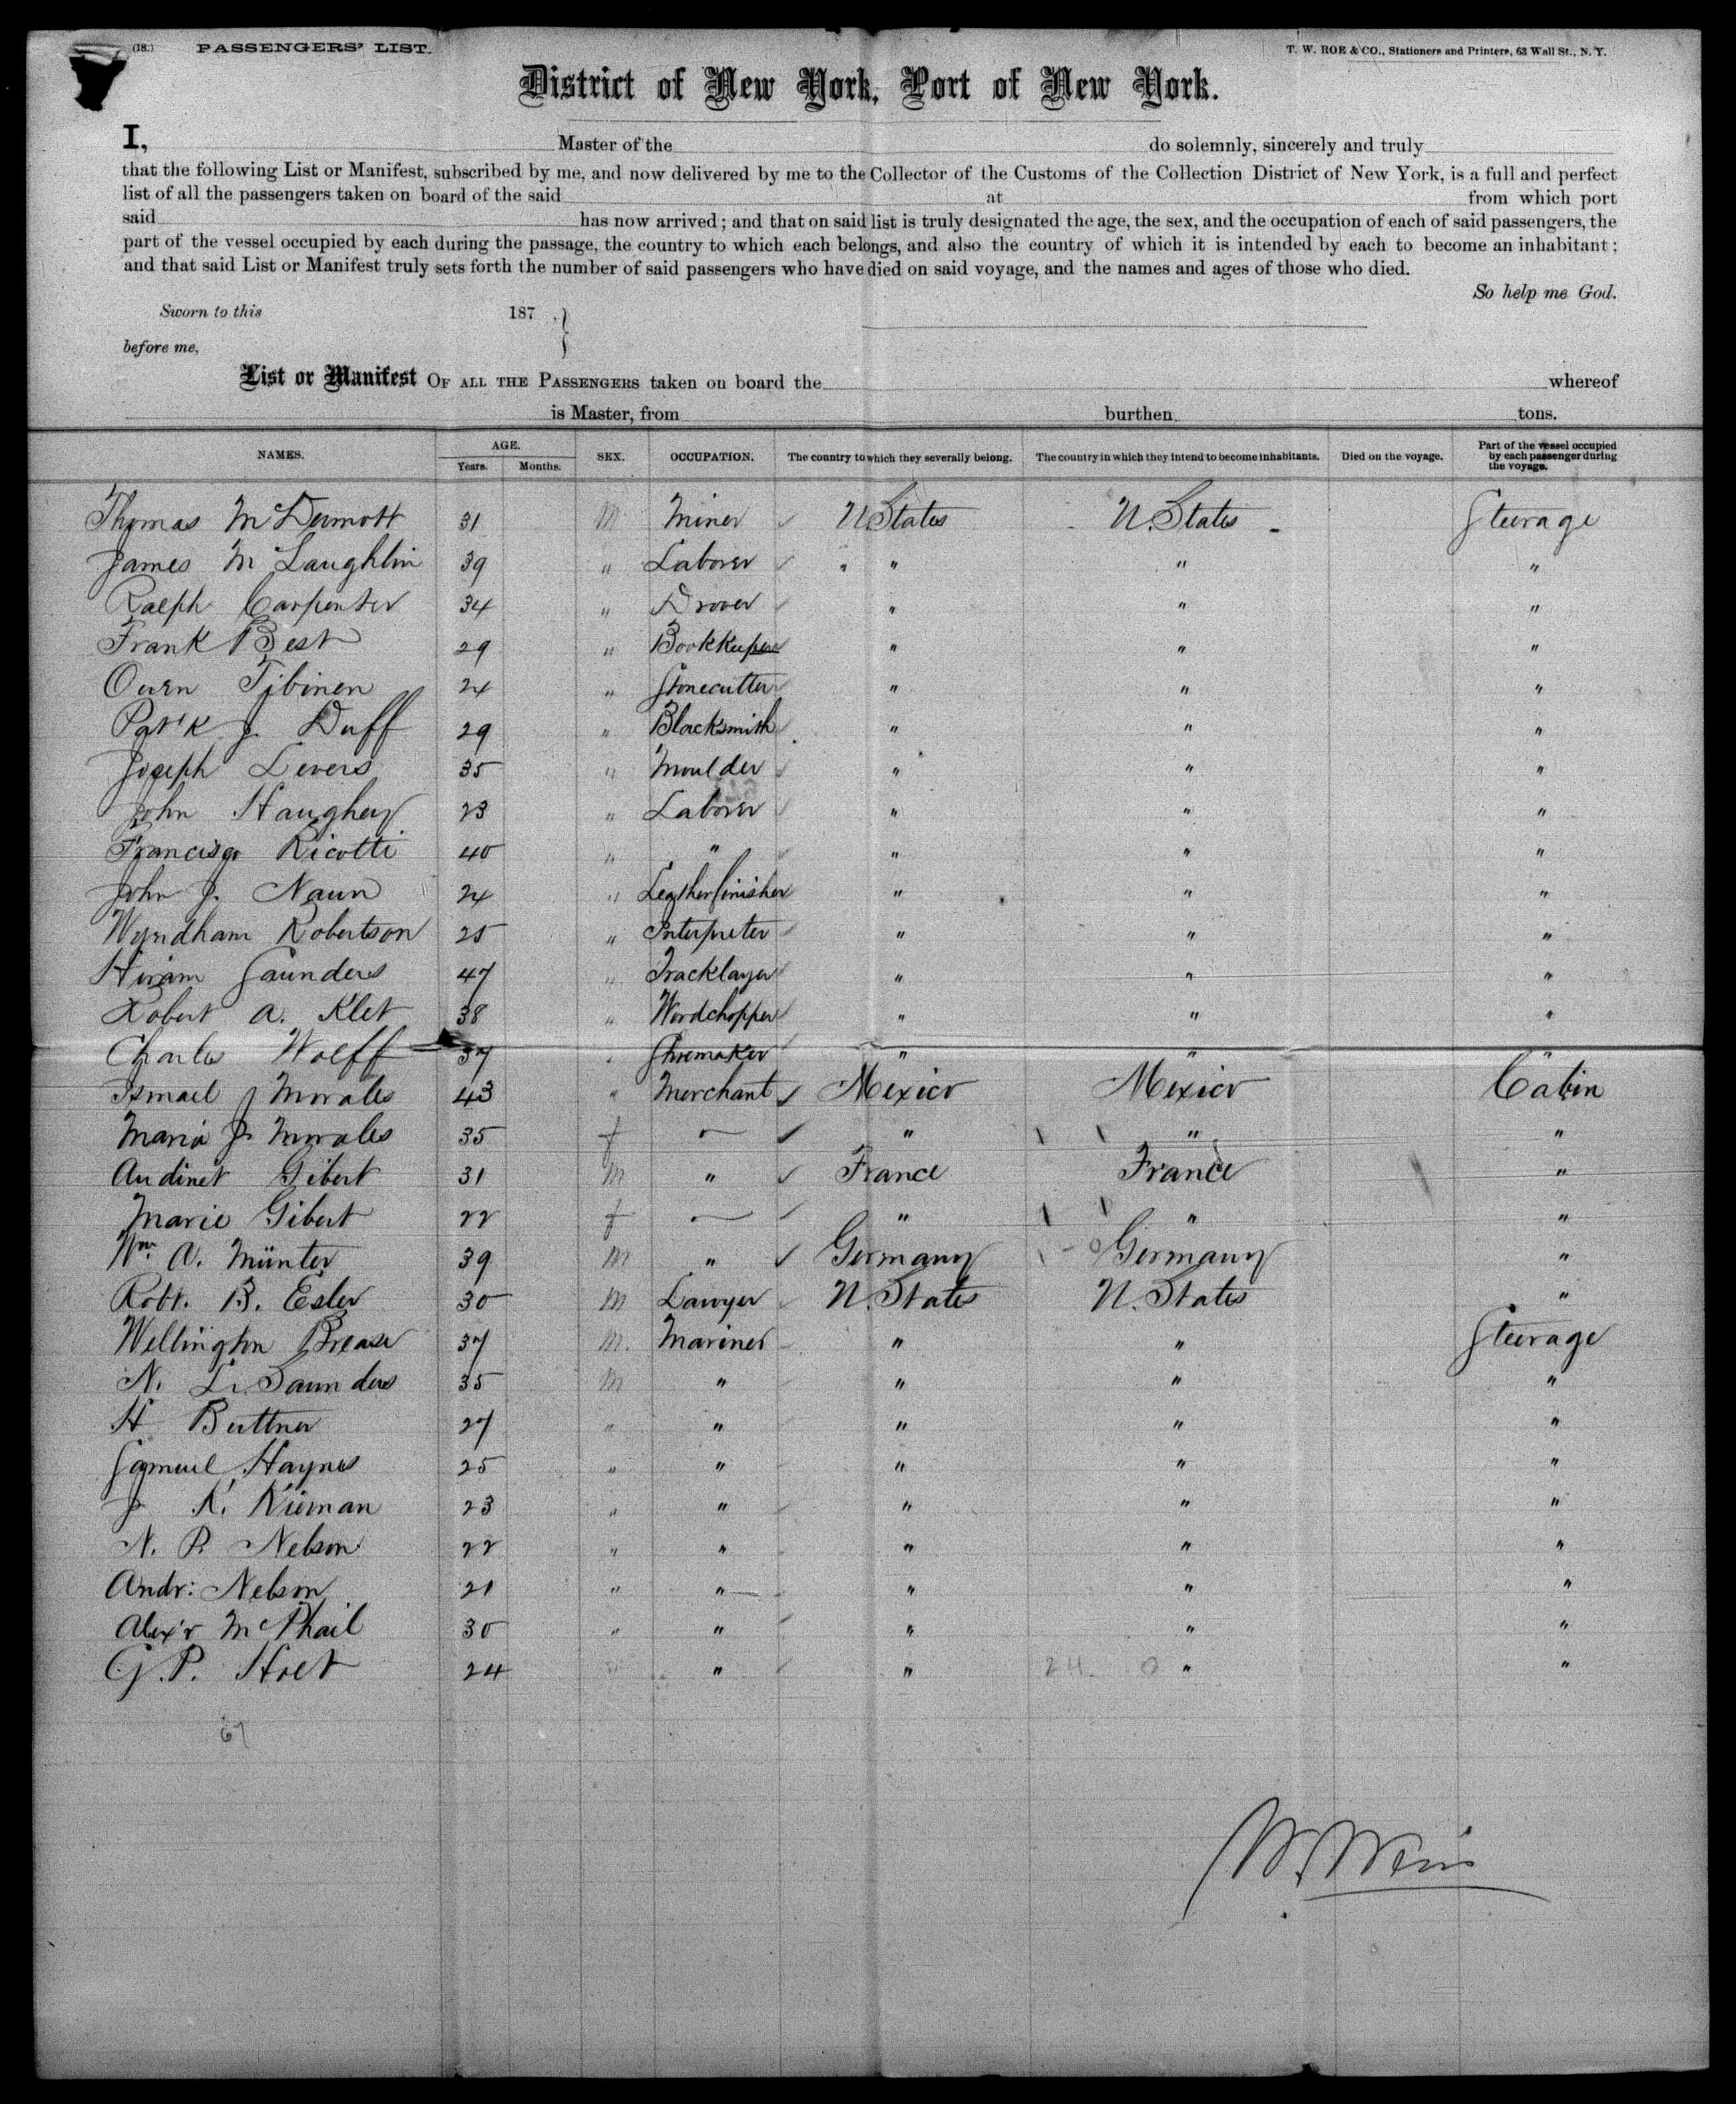 (18.) PASSENGERS' LIST. T. W. ROE & CO., Stationers and Printers, 63 Wall St., N. Y.
District of New York, Port of New York.
I, Master of the do solemnly, sincerely and truly
that the following List or Manifest, subscribed by me, and now delivered by me to the Collector of the Customs of the Collection District of New York, is a full and perfect
list of all the passengers taken on board of the said at from which port
said has now arrived; and that on said list is truly designated the age, the sex, and the occupation of each of said passengers, the
part of the vessel occupied by each during the passage, the country to which each belongs, and also the country of which it is intended by each to become an inhabitant;
and that said List or Manifest truly sets forth the number of said passengers who have died on said voyage, and the names and ages of those who died.
So help me God.
Sworn to this 187 .
before me,
List or Manifest OF ALL THE PASSENGERS taken on board the whereof
is Master, from burthen tons.
NAMES. AGE. Years. Months. SEX. OCCUPATION. The country to which they severally belong. The country in which they intend to become inhabitants. Died on the voyage. Part of the vessel occupied by each passenger during the voyage.
Thomas McDermott 31 M Miner U. States U. States Steerage
James McLaughlin 39 " Laborer " " " "
Ralph Carpenter 34 " Drover " " "
Frank Best 29 " Bookkeeper " " "
Owen 24 " Stonecutter " " "
Pat'k J. Duff 29 " Blacksmith " " "
Joseph Levers 35 " Moulder " " "
John Haughey 23 " Laborer " " "
Francisco Ricotti 40 " " " " "
John J. Naun 24 " Leatherfinisher " " "
Wyndham Robertson 25 " Interpreter " " "
Hiram Saunders 47 " Tracklayer " " "
Robert A. Klet 38 " Woodchopper " " "
Charles Wolff 37 " Shoemaker " " "
Ismael J Morales 43 " Merchant Mexico Mexico Cabin
Maria J. Morales 35 f — " " "
Audinet Gibert 31 M " France France "
Marie Gibert 22 f — " " "
Wm. A. Münter 39 M " Germany Germany "
Robt. B. Esler 30 M Lawyer U. States U. States "
Wellington Brease 37 M. Mariner " " Steerage
N. L. Saunders 35 M " " " "
H Buttner 27 " " " " "
Samuel Haynes 25 " " " " "
J K. Kieman 23 " " " " "
N. P. Nelson 22 " " " " "
Andr: Nelson 21 " " " " "
Alex'r McPhail 30 " " " " "
G. P. Holt 24 " " " 24. 0 " "
67